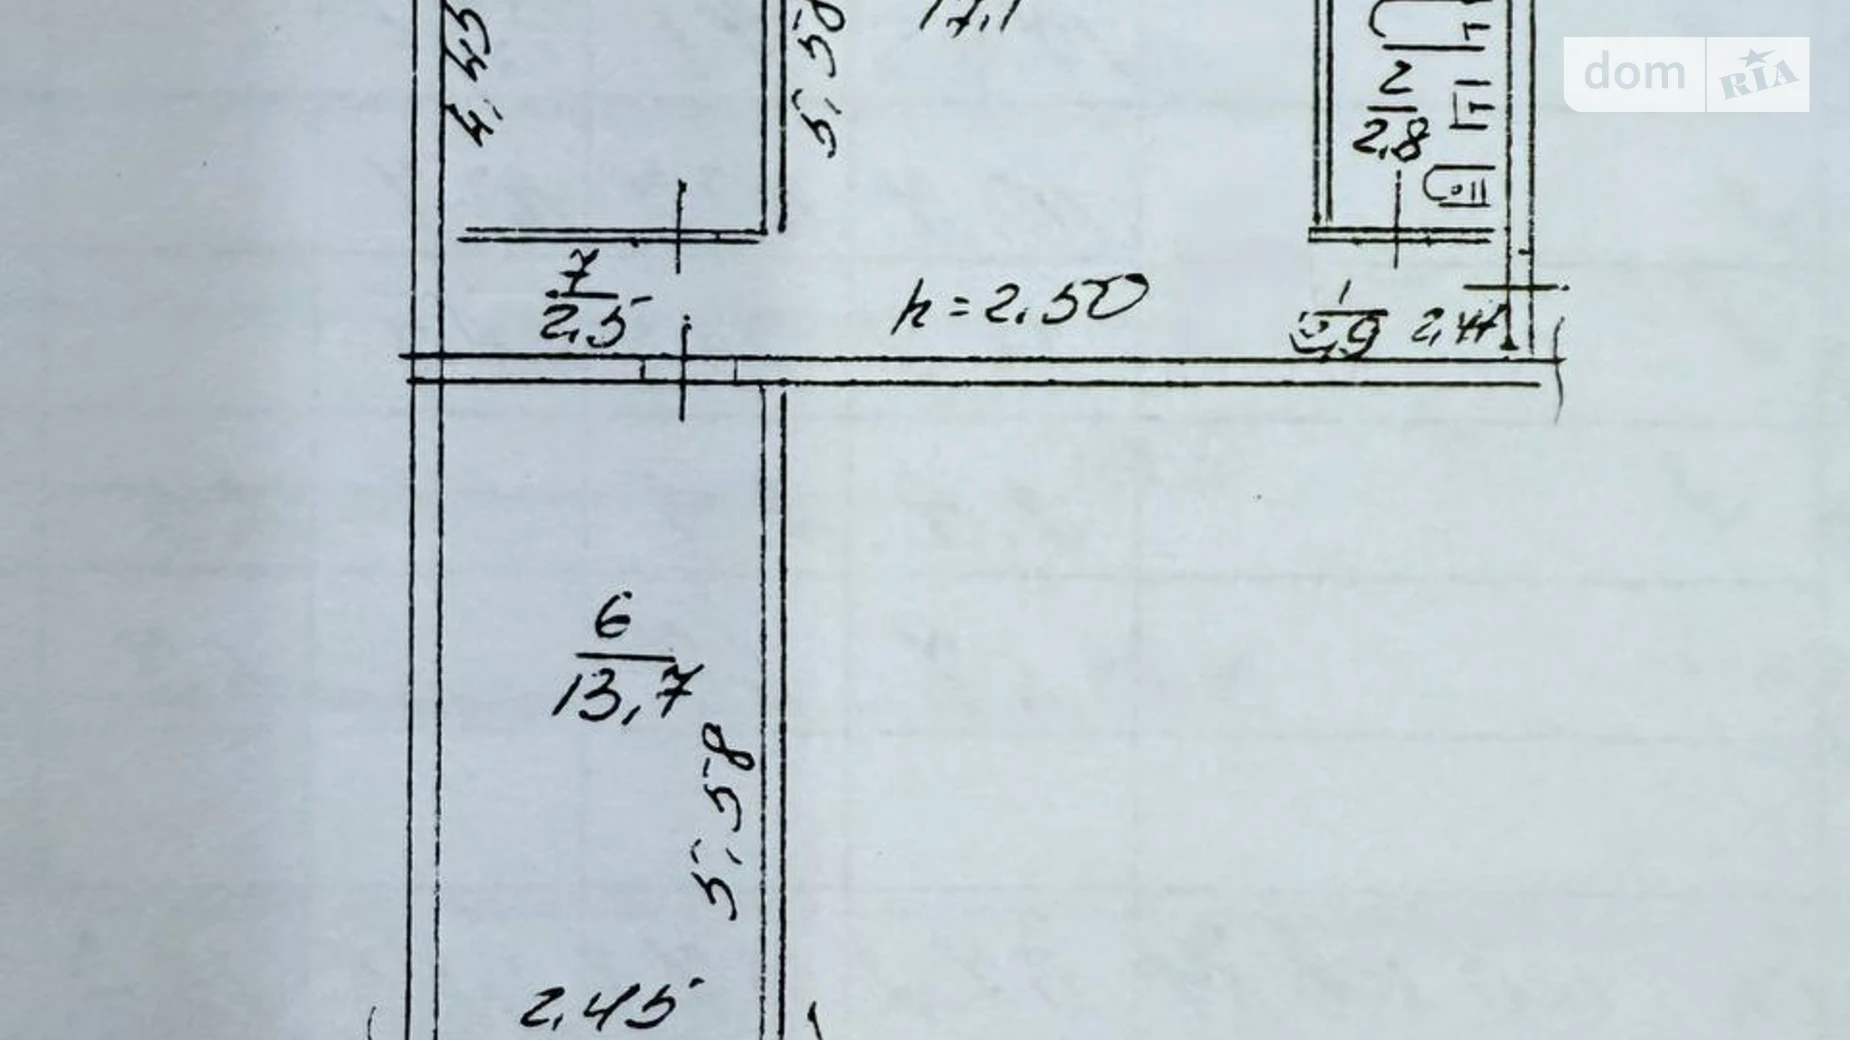 4,45
5,58
17,1
2
2,8
dom RIA
7
2,5
h=2.50
1
2,41
6
13,7
5,58
2,45